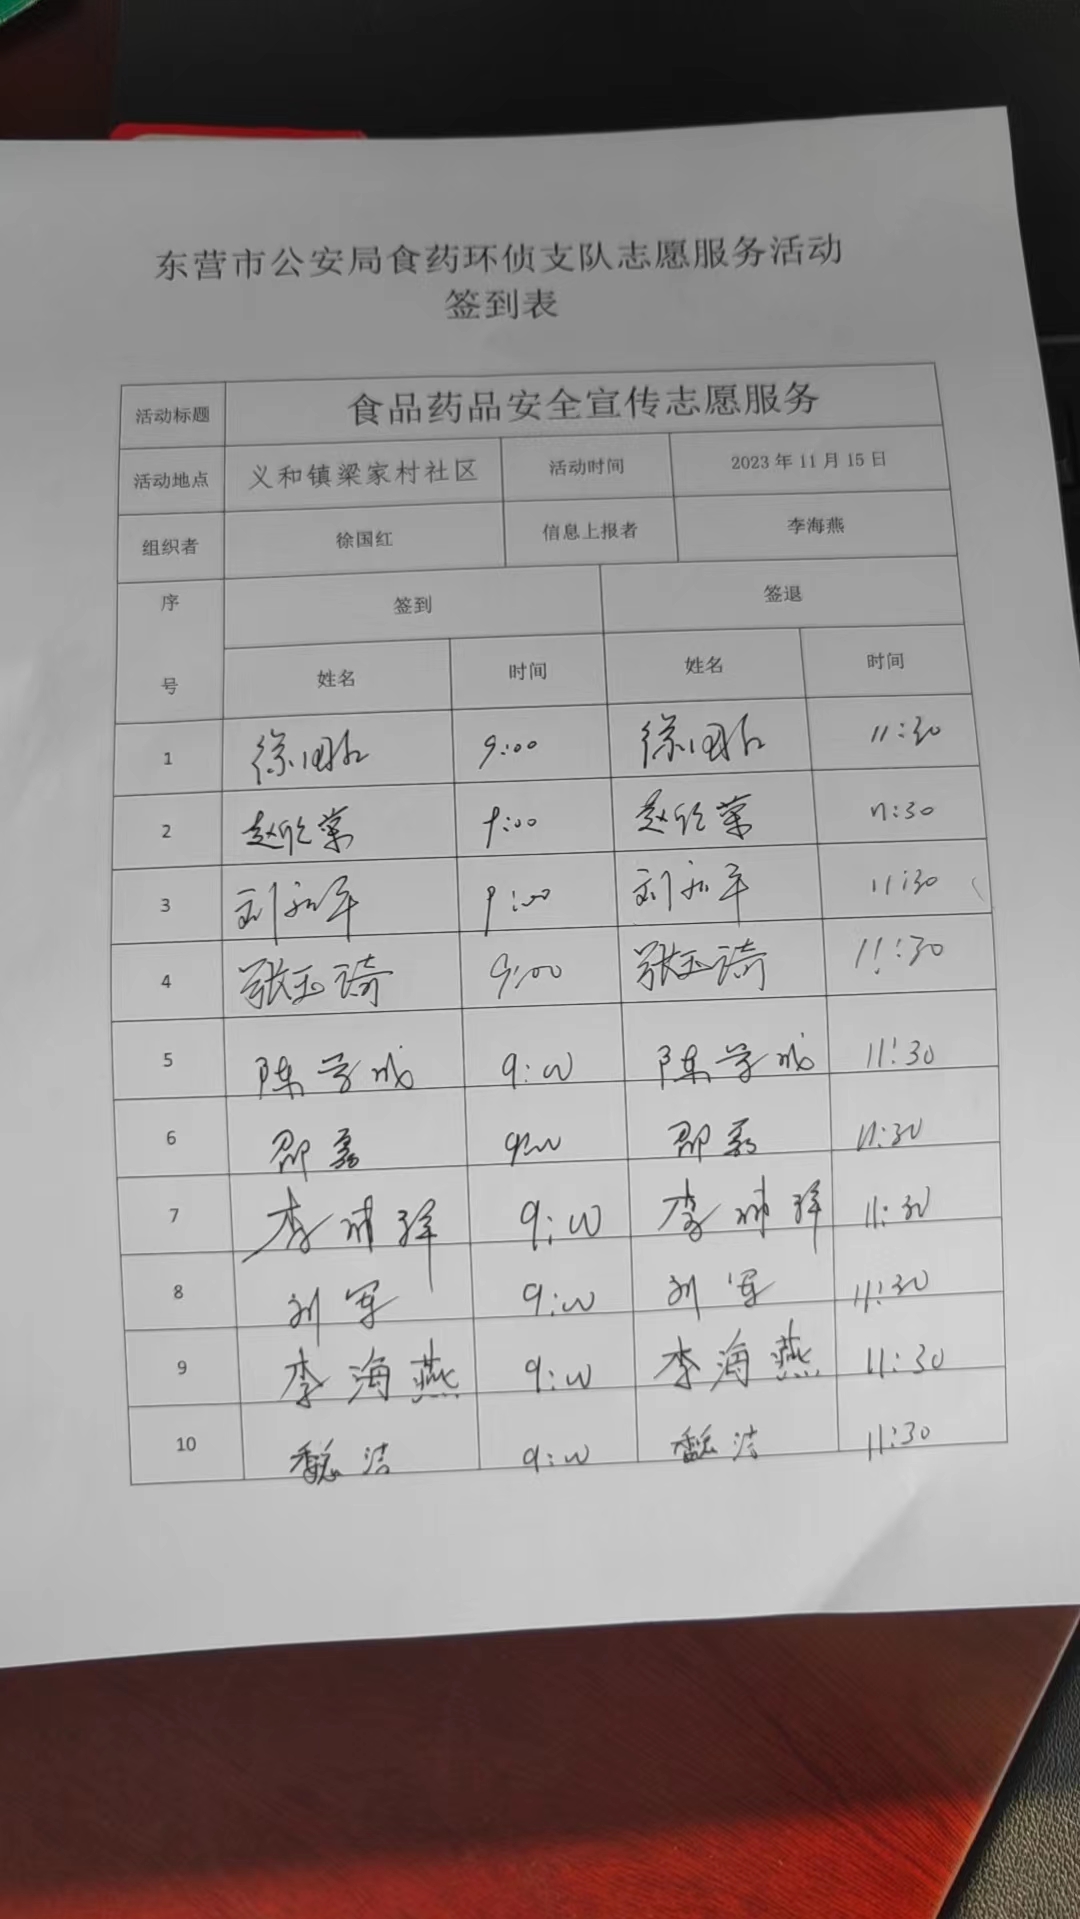 东营市公安局食药环侦支队志愿服务活动
签到表
活动标题 食品药品安全宣传志愿服务
活动地点 义和镇梁家村社区 活动时间 2023年11月15日
组织者 徐国红 信息上报者 李海燕
序号 签到 签退
姓名 时间 姓名 时间
1 徐国红 9:00 徐国红 11:30
2 赵欣荣 9:00 赵欣荣 11:30
3 刘和平 9:00 刘和平 11:30
4 张玉琦 9:00 张玉琦 11:30
5 陈学成 9:00 陈学成 11:30
6 邵磊 9:00 邵磊 11:30
7 李 9:00 李 11:30
8 刘军 9:00 刘军 11:30
9 李海燕 9:00 李海燕 11:30
10 魏洁 9:00 魏洁 11:30